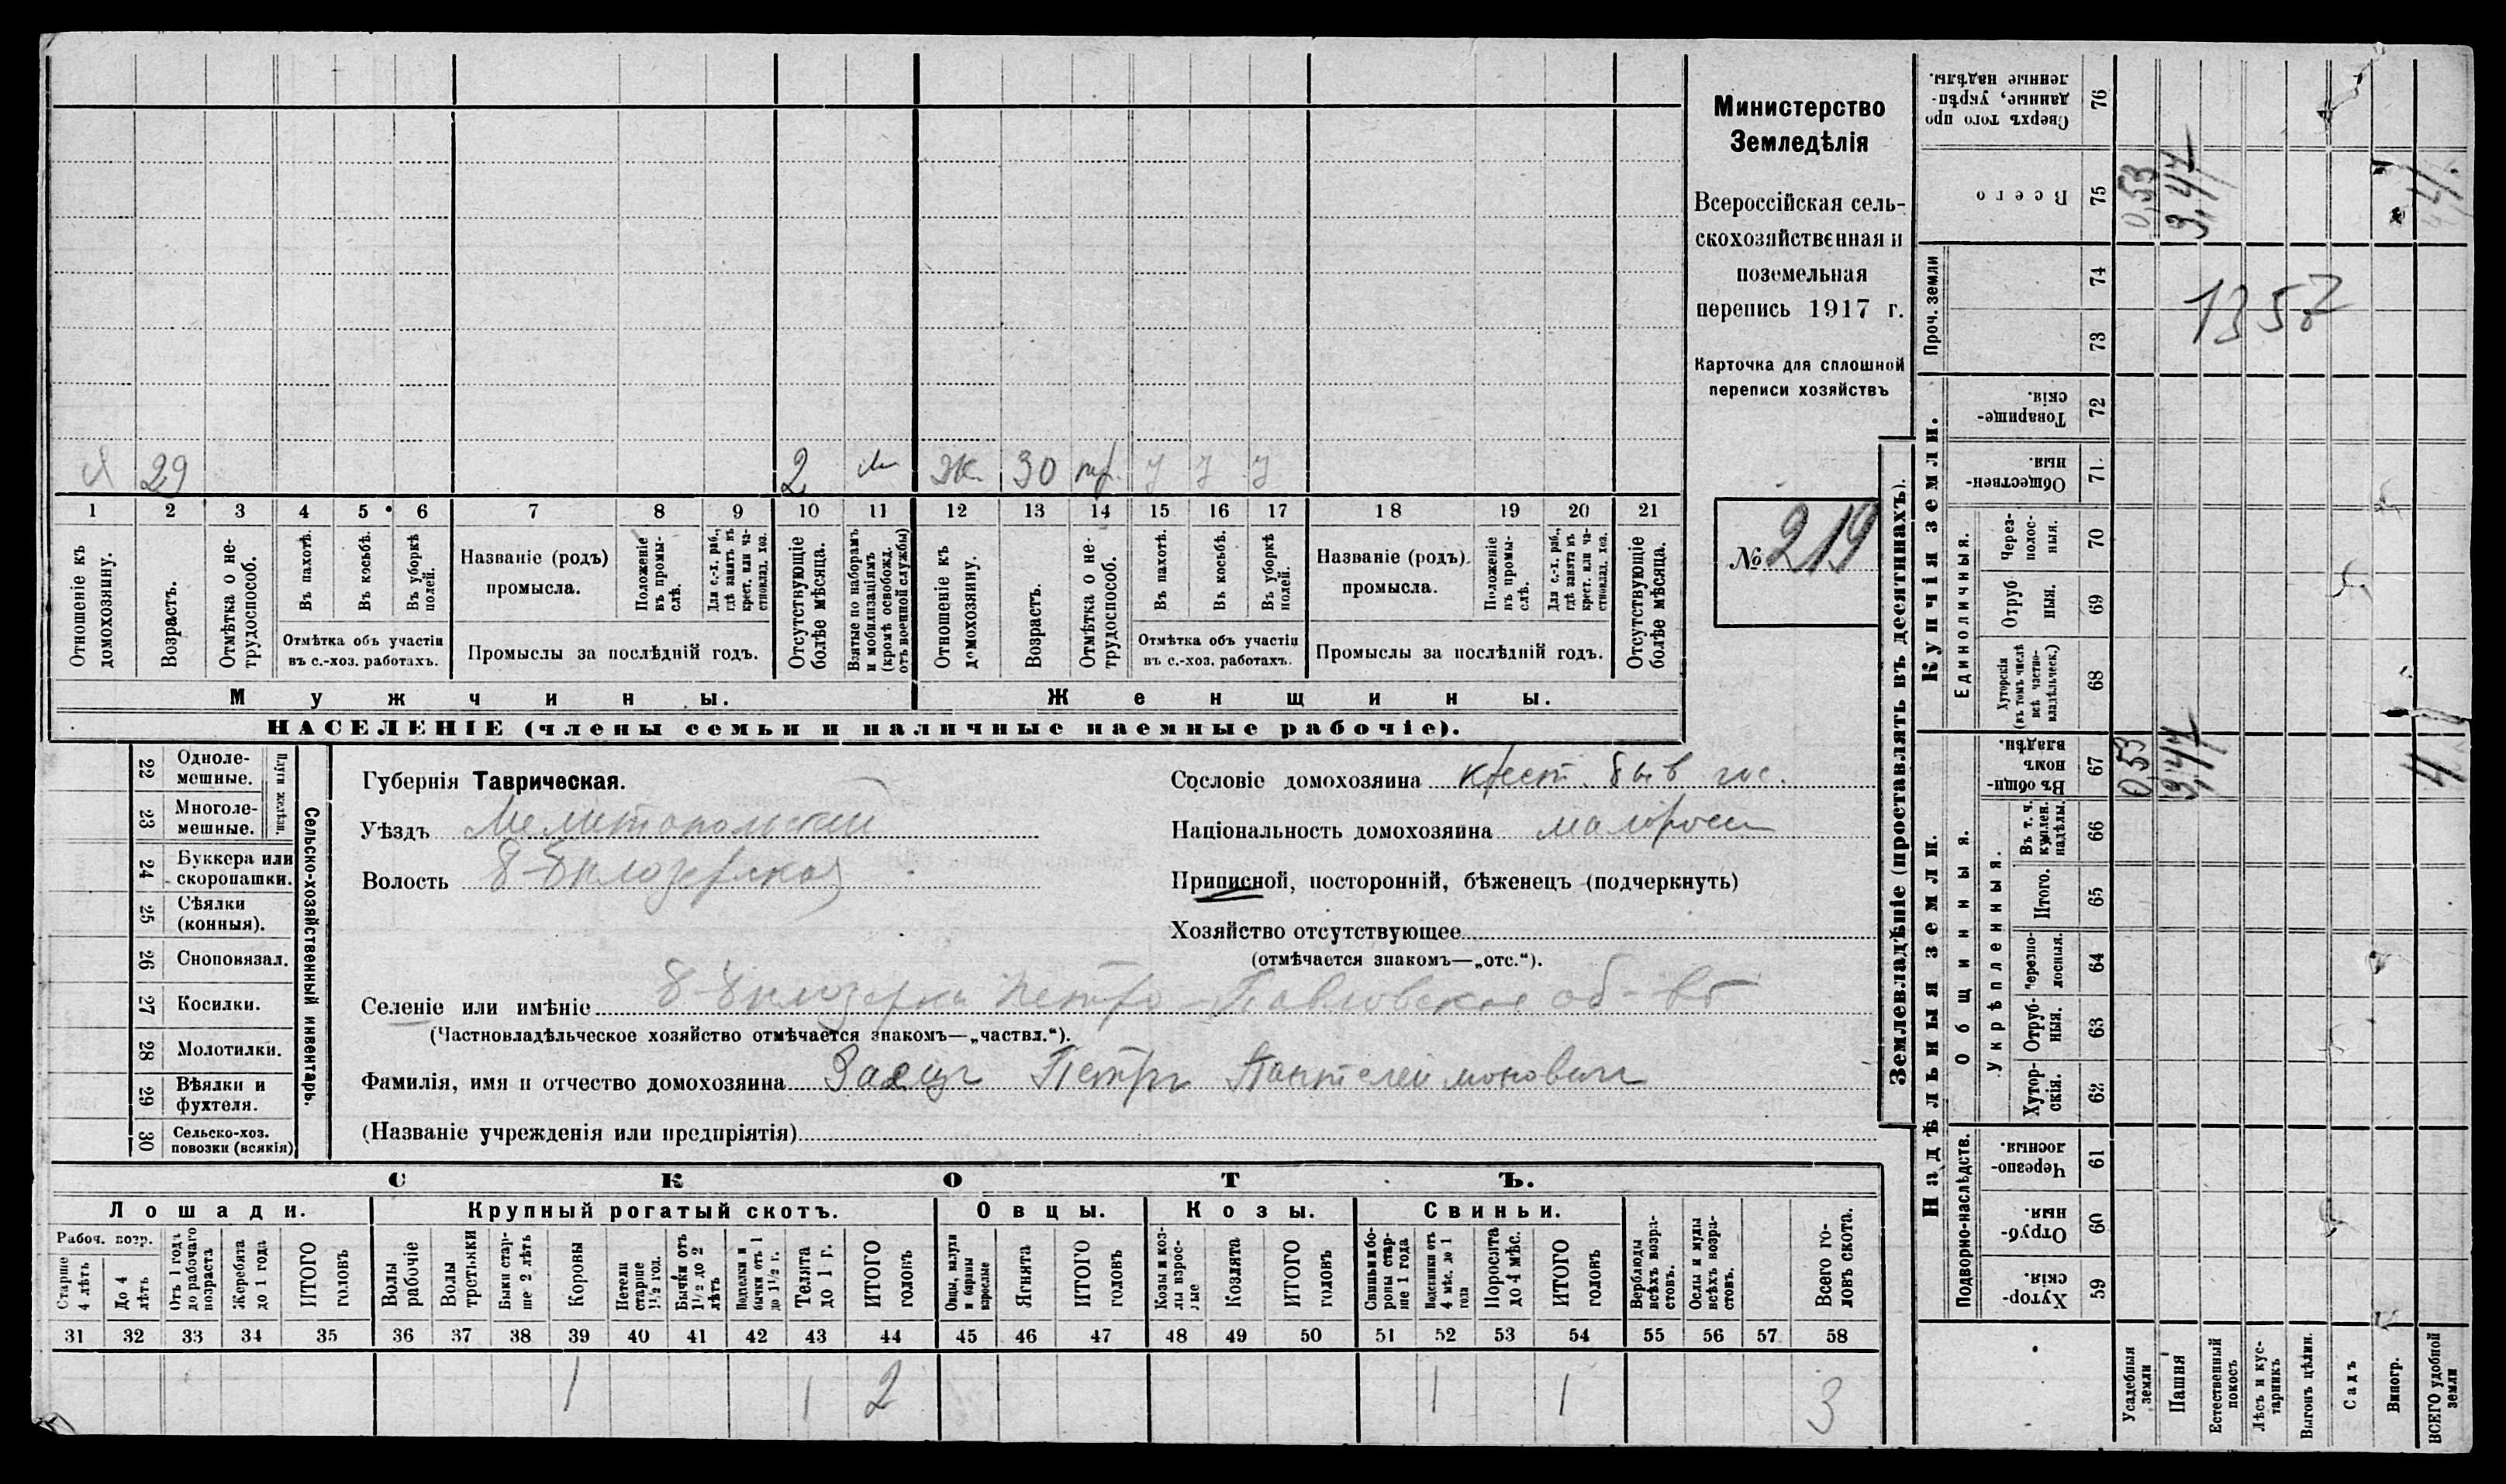 Я 29 2 м Ж 30 пр. у у у
1 2 3 4 5 6 7 8 9 10 11 12 13 14 15 16 17 18 19 20 21
Отношеніе къ домохозяину.
Возрастъ.
Отмѣтка о не-трудоспособ.
Въ пахотѣ.
Въ косьбѣ.
Въ уборкѣ полей.
Отмѣтка объ участіи
въ с.-хоз. работахъ.
Названіе (родъ)
промысла.
Положеніе въ промы-слѣ.
Для с.-х. раб., гдѣ занятъ въ крест. или ча-стновлад. хоз.
Промыслы за послѣдній годъ.
Отсутствующіе болѣе мѣсяца.
Взятые по наборамъ и мобилизаціямъ (кромѣ освобожд. отъ военной службы)
Отношеніе къ домохозяину.
Возрастъ.
Отмѣтка о не-трудоспособ.
Въ пахотѣ.
Въ косьбѣ.
Въ уборкѣ полей.
Отмѣтка объ участіи
въ с.-хоз. работахъ.
Названіе (родъ)
промысла.
Положеніе въ промы-слѣ.
Для с.-х. раб., гдѣ занятъ въ крест. или ча-стновлад. хоз.
Промыслы за послѣдній годъ.
Отсутствующіе болѣе мѣсяца.
Мужчины. Женщины.
НАСЕЛЕНІЕ (члены семьи и наличные наемные рабочіе).
Министерство
Земледѣлія
Всероссійская сель-
скохозяйственная и
поземельная
перепись 1917 г.
Карточка для сплошной
переписи хозяйствъ
№ 219
22 Одноле-мешные.
23 Многоле-мешные.
Плуги желѣзн.
24 Буккера или скоропашки.
25 Сѣялки (конныя).
26 Сноповязал.
27 Косилки.
28 Молотилки.
29 Вѣялки и фухтеля.
30 Сельско-хоз. повозки (всякія)
Сельско-хозяйственный инвентарь.
Губернія Таврическая.
Уѣздъ Мелитопольскій
Волость Б-Бѣлозерская
Сословіе домохозяина крест. быв. гос.
Національность домохозяина малоросс
Приписной, посторонній, бѣженецъ (подчеркнуть)
Хозяйство отсутствующее
(отмѣчается знакомъ—„отс.“).
Селеніе или имѣніе Б-Бѣлозерка Петро-Павловское об-во
(Частновладѣльческое хозяйство отмѣчается знакомъ—„частвл.“).
Фамилія, имя и отчество домохозяина Заецъ Петръ Пантелеймоновичъ
(Названіе учрежденія или предпріятія)
СКОТЪ.
Лошади. Крупный рогатый скотъ. Овцы. Козы. Свиньи.
Рабоч. возр.
Старше 4 лѣтъ
До 4 лѣтъ
Отъ 1 года до рабочаго возраста
Жеребята до 1 года
ИТОГО головъ
Волы рабочіе
Волы третьяки
Быки стар-ше 2 лѣтъ
Коровы
Нетели старше 1½ год.
Бычки отъ 1½ до 2 лѣтъ
Подтелки и бычки отъ 1 до 1½ г.
Телята до 1 г.
ИТОГО головъ
Овцы, валухи и бараны взрослые
Ягнята
ИТОГО головъ
Козы и коз-лы взрос-лые
Козлята
ИТОГО головъ
Свиньи и бо-ровы стар-ше 1 года
Подсвинки отъ 4 мѣс. до 1 года
Поросята до 4 мѣс.
ИТОГО головъ
Верблюды всѣхъ возра-стовъ.
Ослы и мулы всѣхъ возра-стовъ.
Всего го-ловъ скота.
31 32 33 34 35 36 37 38 39 40 41 42 43 44 45 46 47 48 49 50 51 52 53 54 55 56 57 58
1 1 2 1 1 3
Землевладѣніе (проставлять въ десятинахъ).
Купчія земли.
Надѣльныя земли.
Сверхъ того про-данные, укрѣп-ленные надѣлы. 76
Всего 75 0,53 3,47 4
Проч. земли 74 73
1357
Товарище-скія. 72
Обществен-ныя. 71.
Единоличныя.
Через-полос-ныя. 70
Отруб-ныя. 69
Хуторскія (въ томъ числѣ всѣ частно-владѣльческ.) 68
Въ общин-номъ владѣн. 67 0,53 3,47 4
Общинныя.
Укрѣпленныя.
Въ т. ч. куплен. надѣлы. 66
Итого. 65
Черезпо-лосныя. 64
Отруб-ныя. 63
Хутор-скія. 62
Подворно-наслѣдств.
Черезпо-лосныя. 61
Отруб-ныя. 60
Хутор-скія. 59
Усадебныя земли
Пашня
Естественный покосъ
Лѣсъ и кус-тарникъ
Выгонъ цѣлин.
Садъ
Виногр.
ВСЕГО удобной земли